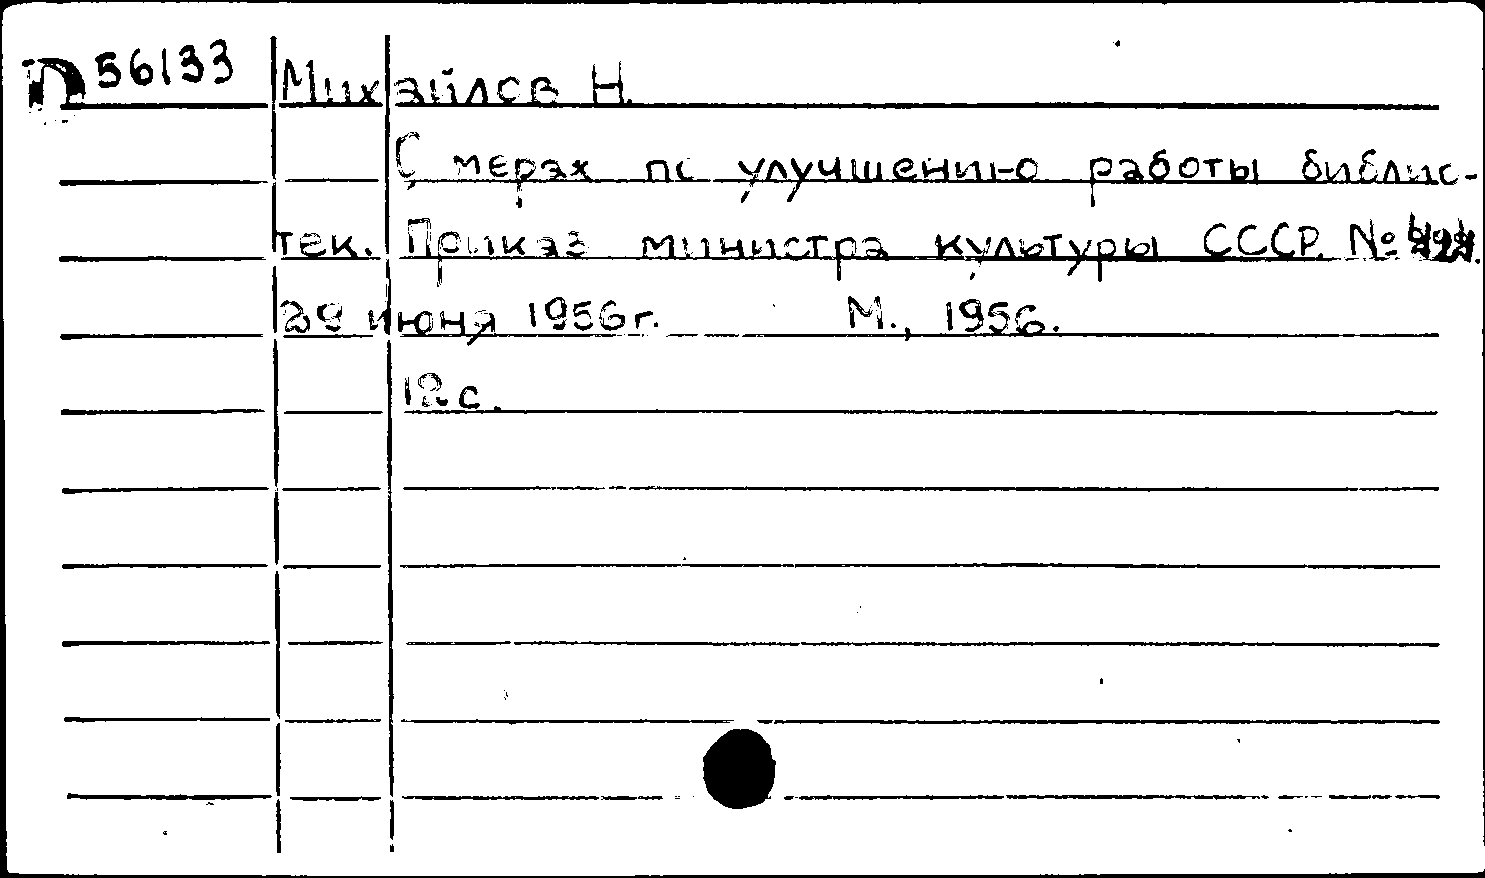 П56133 Михайлов Н.
О мерах по улучшению работы библио-
тек. Приказ министра культуры СССР. №
29 июня 1956г. М., 1956.
12 с.